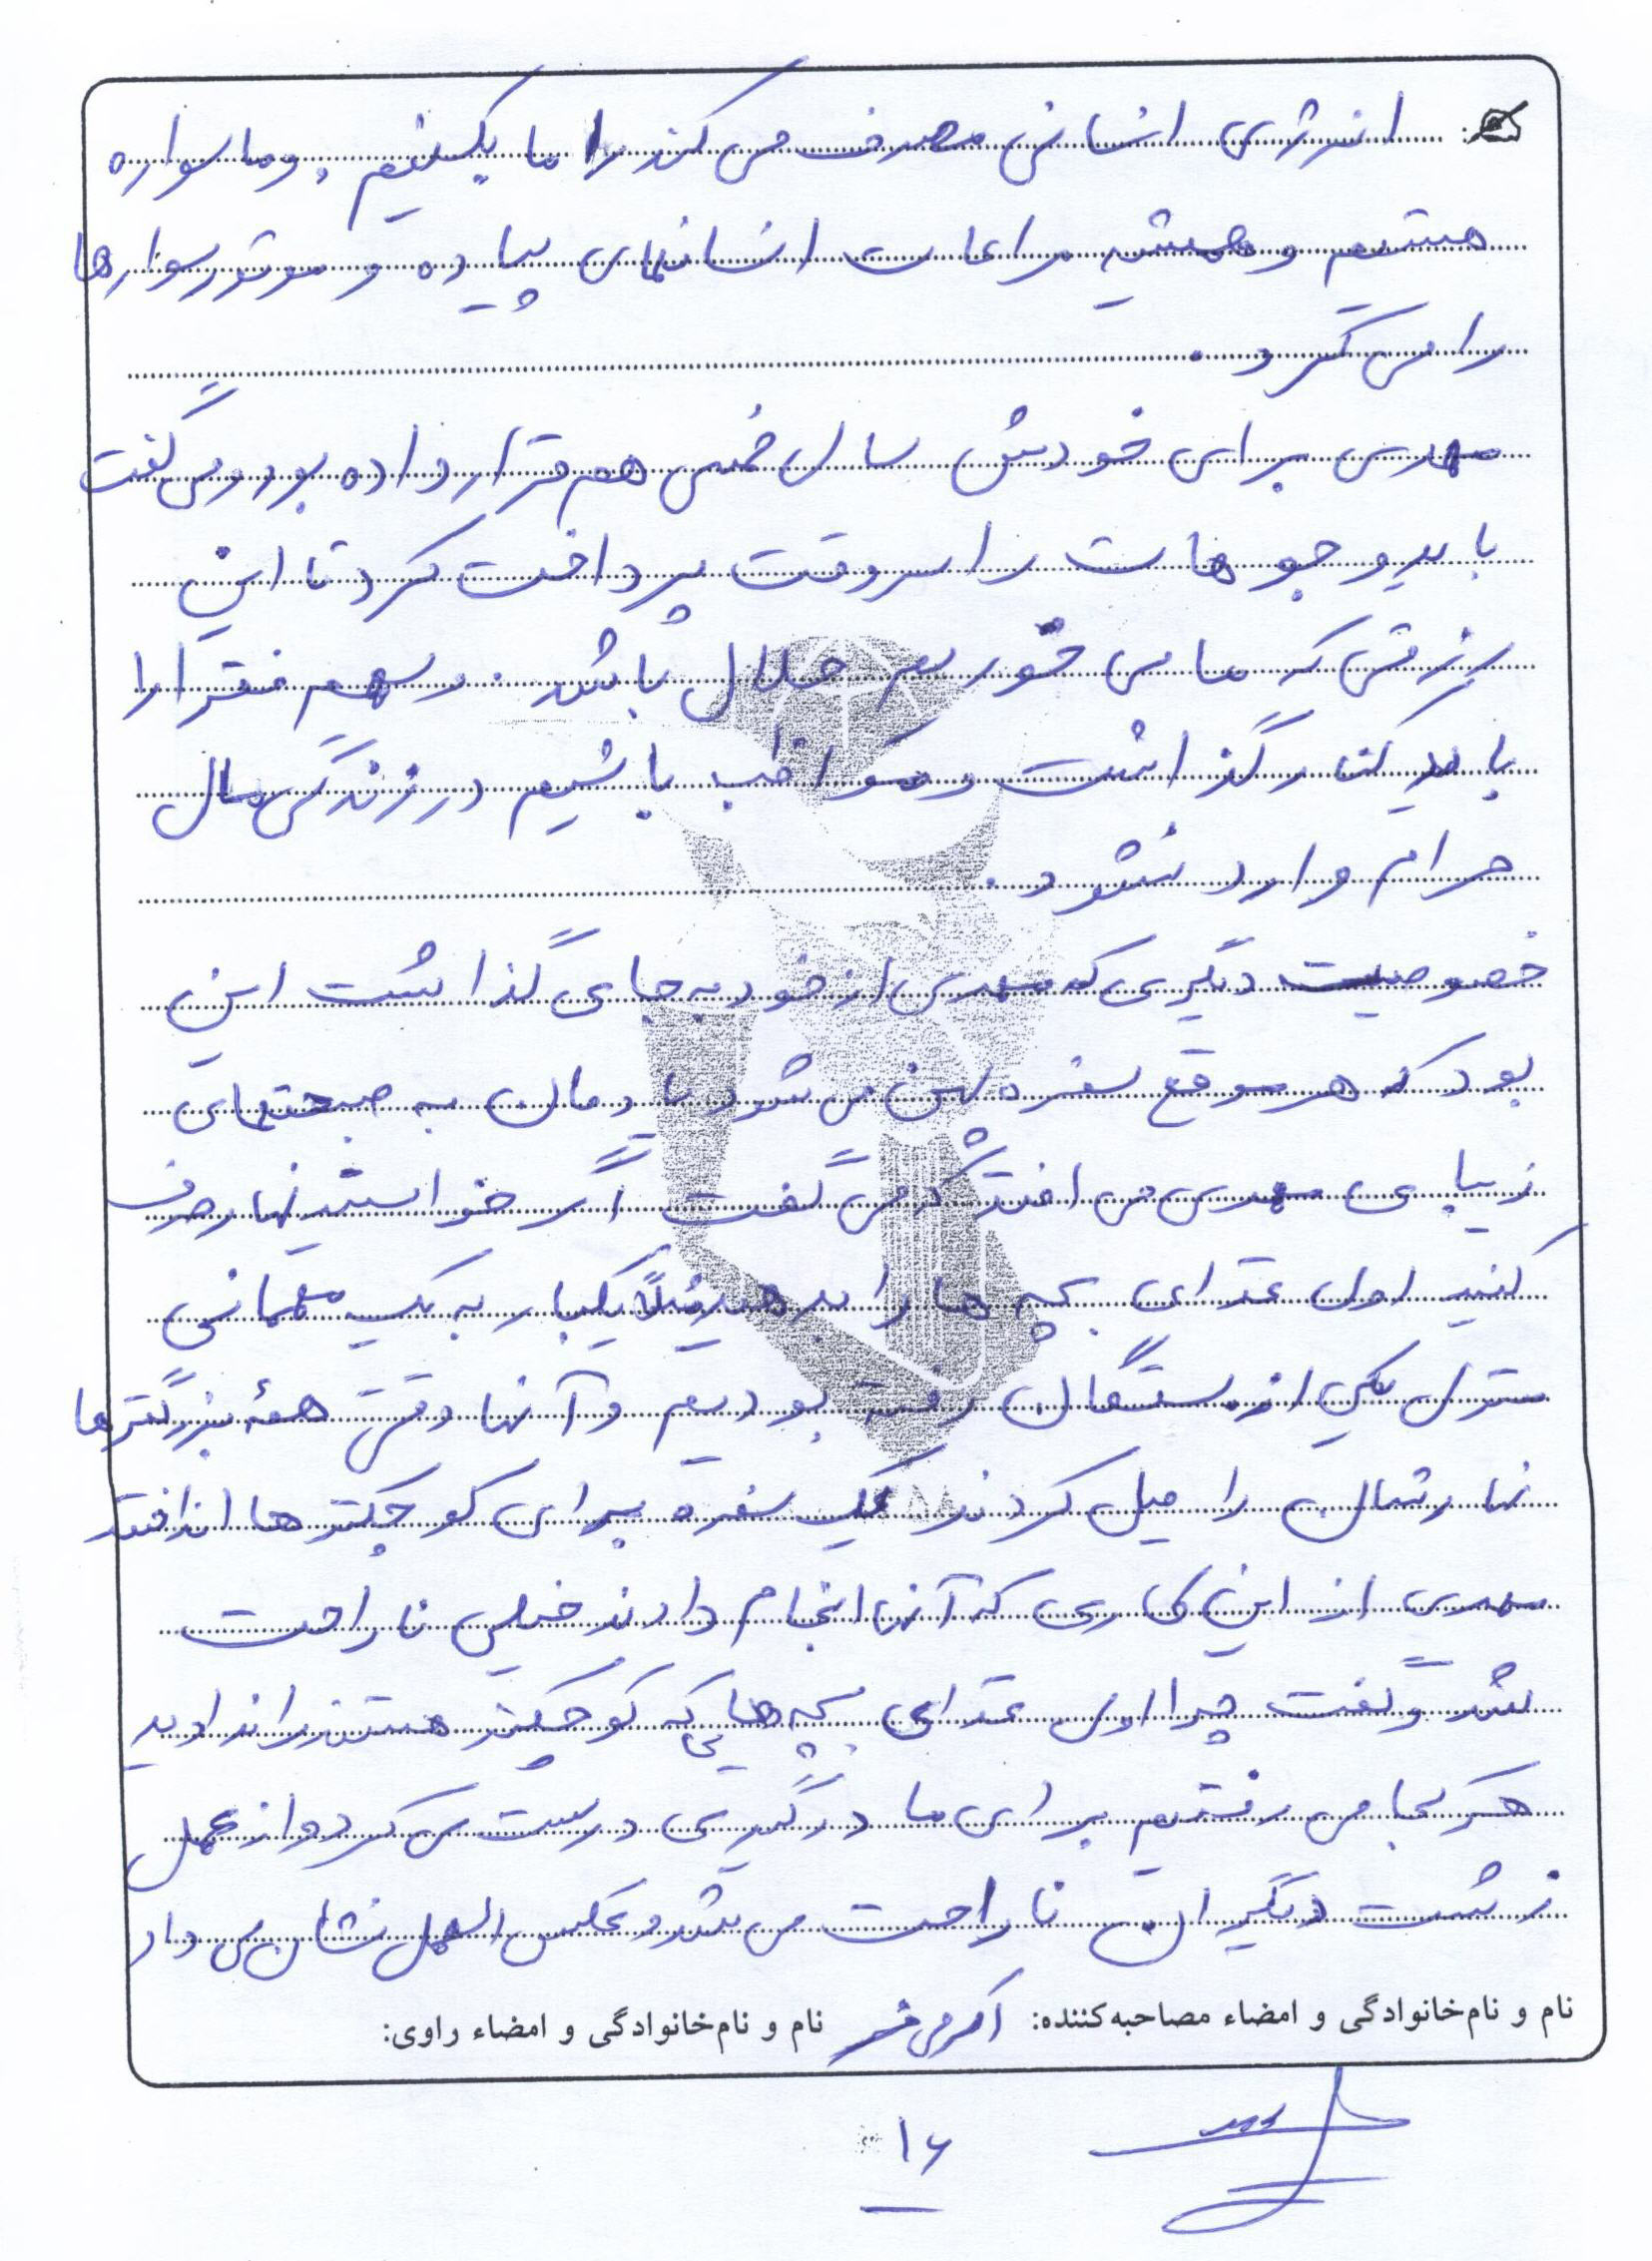 انرژی انسانی مصرف می کند را ما بکنیم. و ما سواره
هستیم و همیشه مراعات انسانهای پیاده و موتور سوارها
را می کرد.
مهدی برای خودش سال خمسی هم قرار داده بود و می گفت
باید وجوهات را سر وقت پرداخت کرد تا این
رزقی که ما می خوریم حلال باشد. و سهم فقرا را
باید کنار گذاشت و مواظب باشیم در زندگی مال
حرام وارد نشود.
خصوصیت دیگری که مهدی از خود به جای گذاشت این
بود که هر موقع سفره پهن می شود یادمان به صحبتهای
زیبای مهدی می افتد که می گفت اگر خواستید نهار صرف
کنید اول غذای بچه ها را بدهید مثلاً یکبار به یک مهمانی
منزل یکی از بستگان رفته بودیم و آنها وقتی همهٔ بزرگترها
نهارشان را میل کردند یک سفره برای کوچکترها انداختند
مهدی از این کاری که آنها انجام دادند خیلی ناراحت
شد و گفت چرا اول غذای بچه هایی که کوچکتر هستند را ندادید
هر کجا می رفتیم برای ما درگیری درست می کرد و از عمل
زشت دیگران ناراحت می شد و عکس العمل نشان می داد
نام و نام‌خانوادگی و امضاء مصاحبه‌کننده: نام و نام‌خانوادگی و امضاء راوی:
۱۶